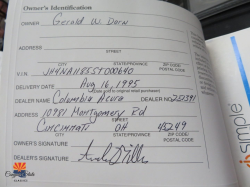 Owner's Identification
OWNER Gerald W. Dorn
ADDRESS
STREET
CITY STATE/PROVINCE ZIP CODE/POSTAL CODE
V.I.N. JH4NA1185ST000640
DELIVERY DATE Aug 16, 1995
(Date sold to original retail purchaser)
DEALER NAME Columbia Acura DEALER NO. 251391
ADDRESS 10981 Montgomery Rd
STREET
Cincinnati OH 45249
CITY STATE/PROVINCE ZIP CODE/POSTAL CODE
OWNER'S SIGNATURE
DEALER'S SIGNATURE
simple